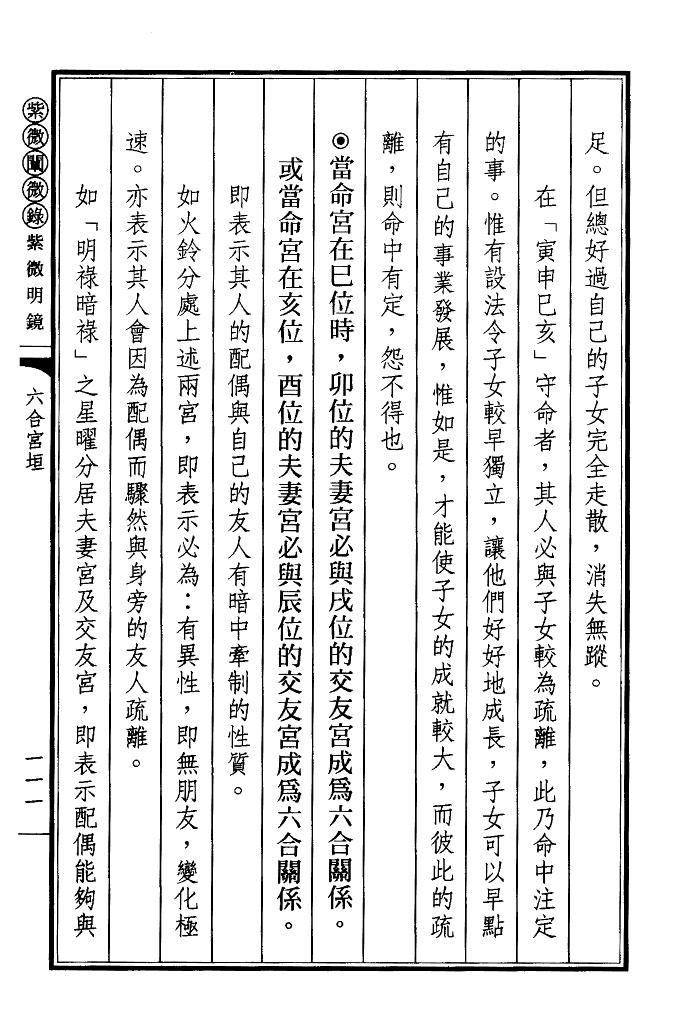 足。但總好過自己的子女完全走散，消失無蹤。
在「寅申巳亥」守命者，其人必與子女較為疏離，此乃命中注定
的事。惟有設法令子女較早獨立，讓他們好好地成長，子女可以早點
有自己的事業發展，惟如是，才能使子女的成就較大，而彼此的疏
離，則命中有定，怨不得也。
⊙當命宮在巳位時，卯位的夫妻宮必與戌位的交友宮成爲六合關係。
或當命宮在亥位，酉位的夫妻宮必與辰位的交友宮成爲六合關係。
即表示其人的配偶與自己的友人有暗中牽制的性質。
如火鈴分處上述兩宮，即表示必為：有異性，即無朋友，變化極
速。亦表示其人會因為配偶而驟然與身旁的友人疏離。
如「明祿暗祿」之星曜分居夫妻宮及交友宮，即表示配偶能夠與
紫微闡微錄紫微明鏡
六合宮垣
一一一